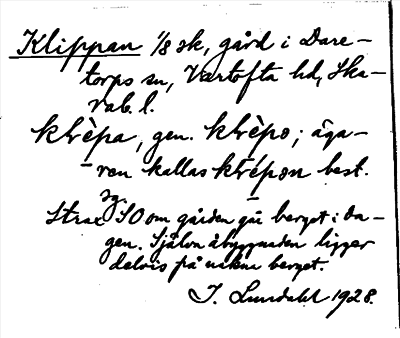 Klippan 1/8 sk, gård i Dare-
torps sn, Vartofta hd, Ska-
rab. l.
klèpa, gen. klèpo; äga-
ren kallas klépon best.
sg.
Strax SO om gården går berget i da-
gen. Själva åbyggnaden ligger
delvis på nakna berget.
J. Lundahl 1928.